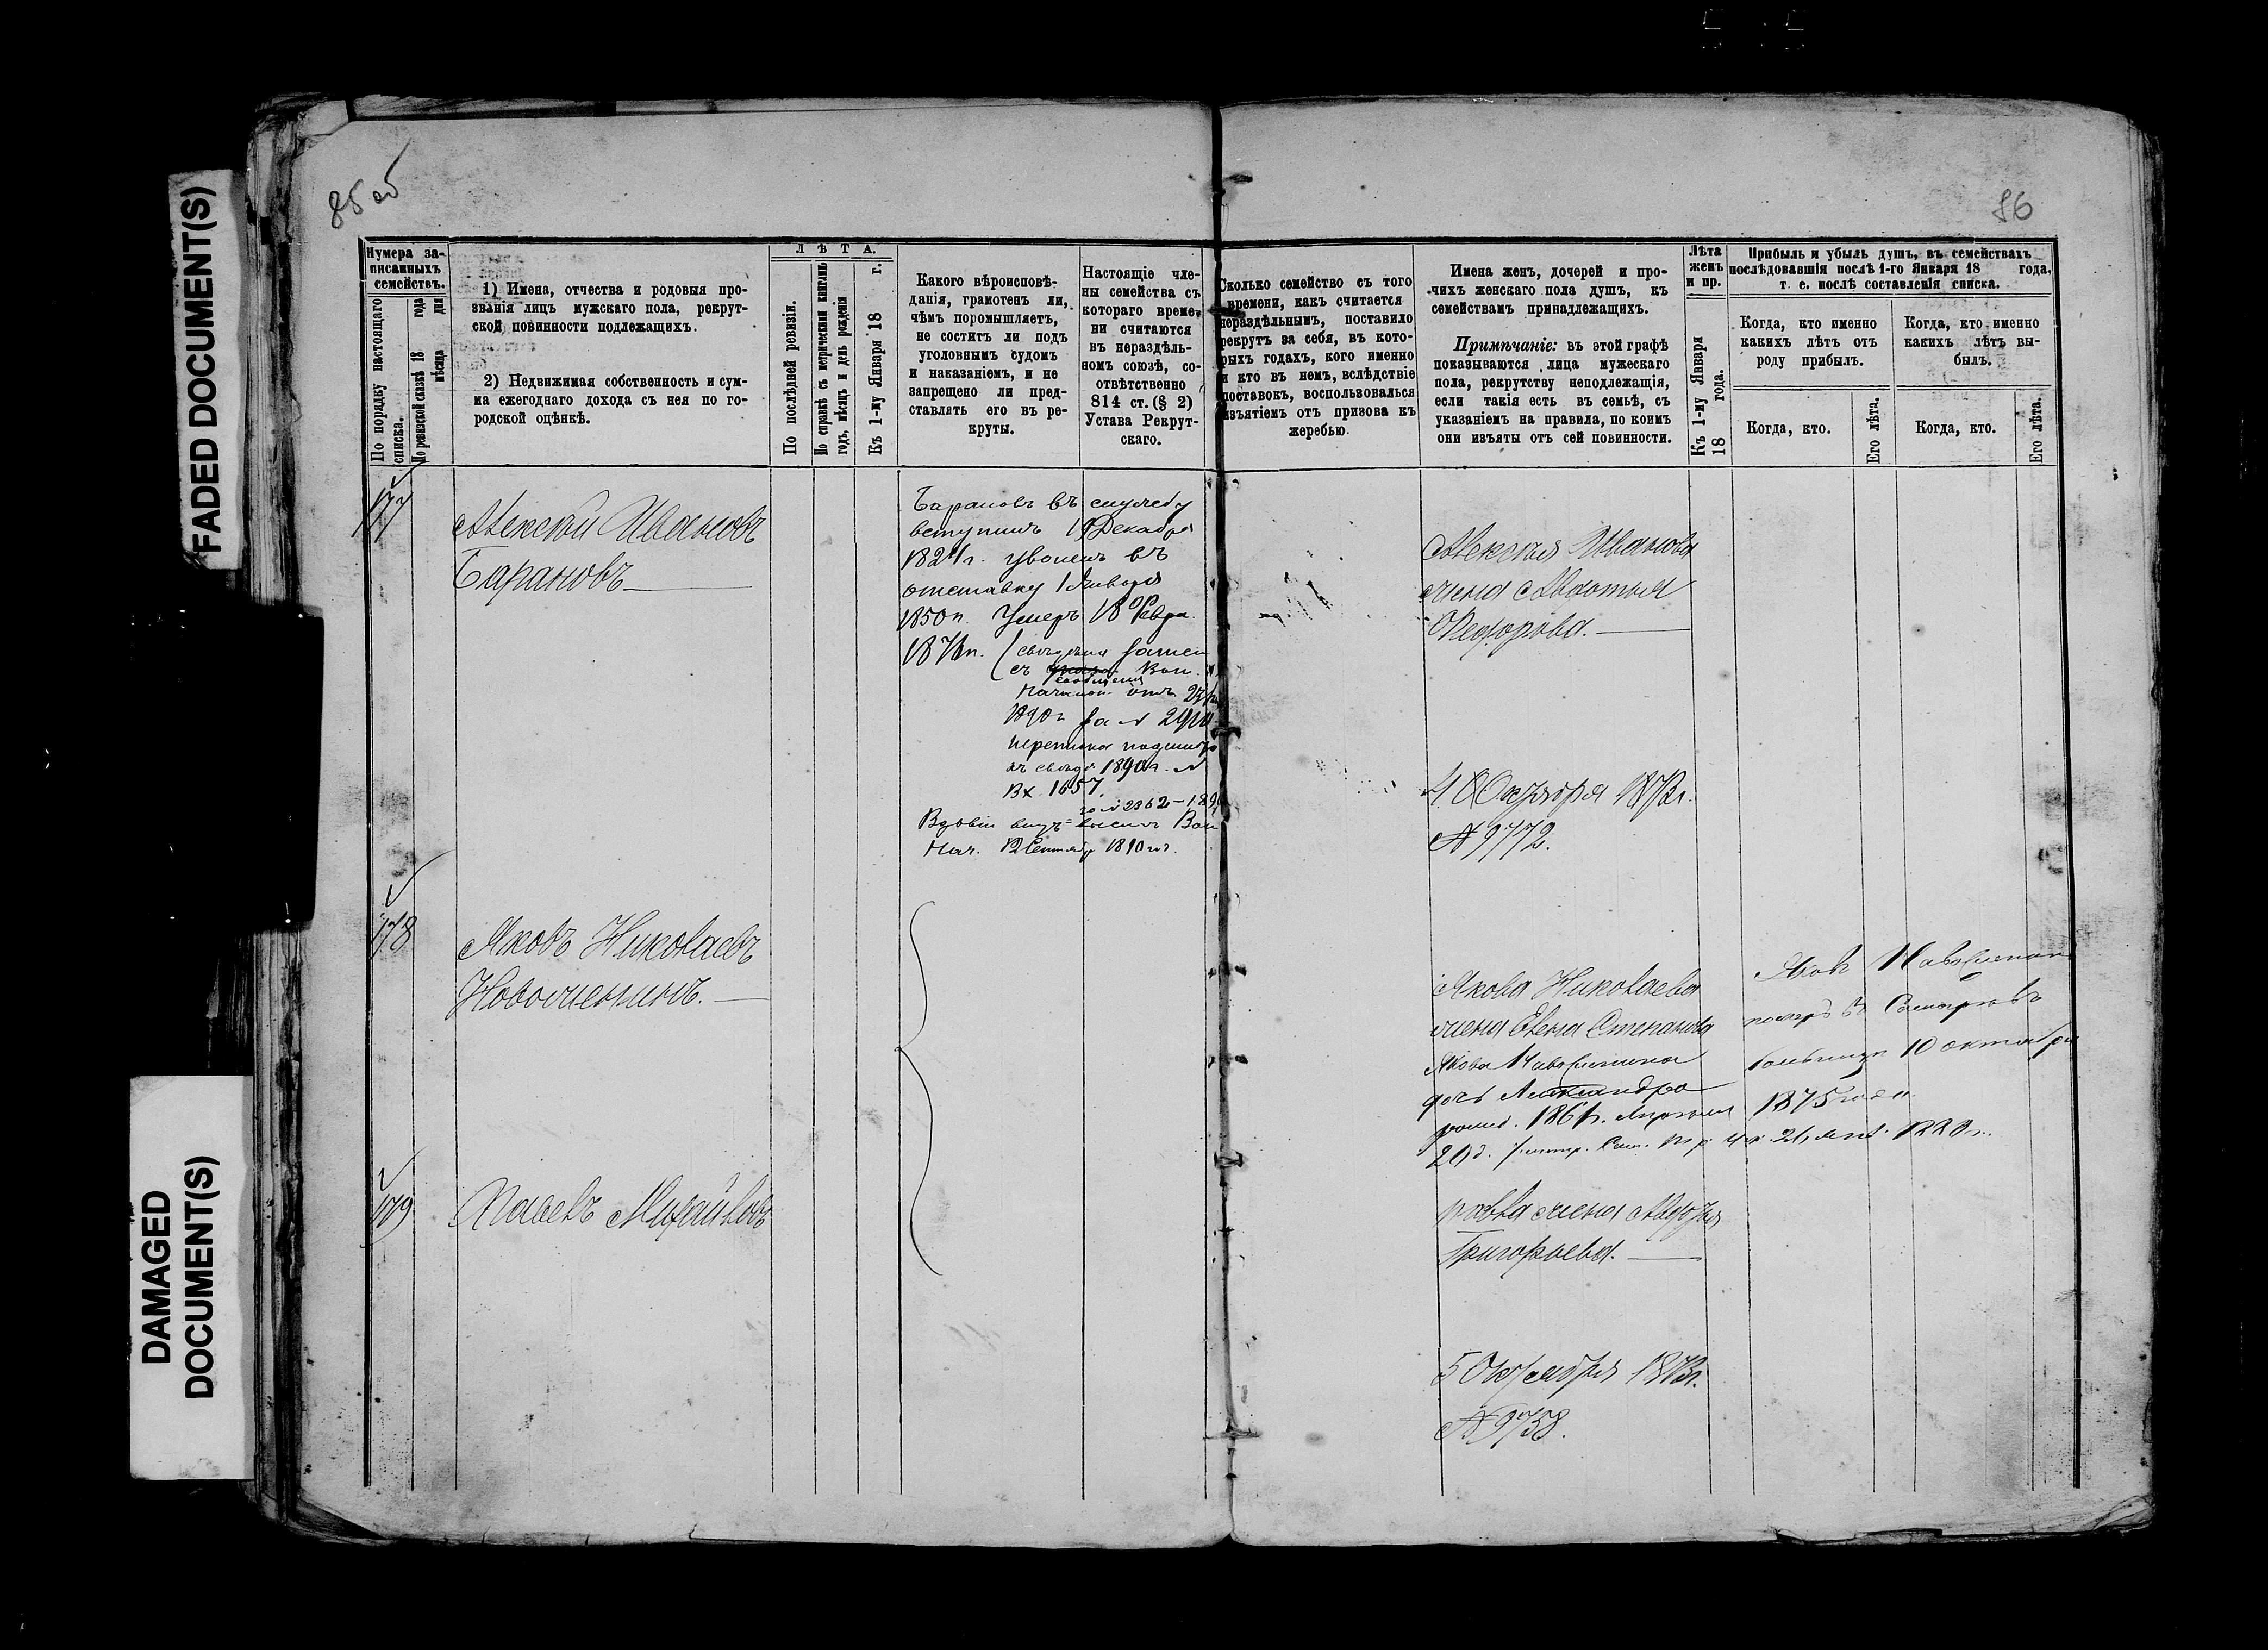 FADED DOCUMENT(S)
DAMAGED
DOCUMENT(S)
85 об
86
Нумера за-
писанныхъ
семействъ.
По порядку настоящаго
списка.
По ревизской сказкѣ 18 года
мѣсяца дня
1) Имена, отчества и родовыя про-
званія лицъ мужскаго пола, рекрут-
ской повинности подлежащихъ.
2) Недвижимая собственность и сум-
ма ежегоднаго дохода съ нея по го-
родской оцѣнкѣ.
ЛѢТА.
По послѣдней ревизіи.
По справкѣ съ метрическими книгами
годъ, мѣсяцъ и день рожденія
Къ 1-му Января 18 г.
Какого вѣроисповѣ-
данія, грамотенъ ли,
чѣмъ поромышляетъ,
не соститъ ли подъ
уголовнымъ судомъ
и наказаніемъ, и не
запрещено ли пред-
ставлять его въ ре-
круты.
Настоящіе чле-
ны семейства съ
котораго време-
ни считаются
въ нераздѣль-
номъ союзѣ, со-
отвѣтственно
814 ст. (§ 2)
Устава Рекрут-
скаго.
Сколько семейство съ того
времени, какъ считается
нераздѣльнымъ, поставило
рекрутъ за себя, въ кото-
рыхъ годахъ, кого именно
и кто въ немъ, вслѣдствіе
поставокъ, воспользовался
изъятіемъ отъ призова къ
жеребью.
Имена женъ, дочерей и про-
чихъ женскаго пола душъ, къ
семействамъ принадлежащихъ.
Примѣчаніе: въ этой графѣ
показываются лица мужескаго
пола, рекрутству неподлежащія,
если такія есть въ семьѣ, съ
указаніемъ на правила, по коимъ
они изъяты отъ сей повинности.
Лѣта
женъ
и пр.
Къ 1-му Января
18 года.
Прибыль и убыль душъ, въ семействахъ
послѣдовавшія послѣ 1-го Января 18 года,
т. е. послѣ составленія списка.
Когда, кто именно
какихъ лѣтъ отъ
роду прибылъ.
Когда, кто именно
какихъ лѣтъ вы-
былъ.
Когда, кто.
Его лѣта.
Когда, кто.
Его лѣта.
177
Алексѣй Ивановъ
Барановъ
Барановъ въ службу
вступилъ 19 Декабря
1824г. уволенъ въ
отставку 1 Января
1850г. Умеръ 18 Февр.
187
за № 29
переписка подшита
1890г. №
Вх 1657.
Вдовій видъ
Нач. 12 Сентября 1890 г.
Алексѣя Иванова
жена Авдотья
Федорова.
4 Октября 1873г.
№ 9772.
178
Яковъ Николаевъ
Новоженинъ.
Якова Николаева
жена Елена Степанова
Якова Новоженина
дочь Александра
рожд. 1861г. Апрѣля
Яковъ Новоженинъ
померъ въ
больницѣ 10 октября
1875 года
179
Павелъ Михайловъ
Павла жена
Григорьева.
5 Октября 1873г.
№ 9758.